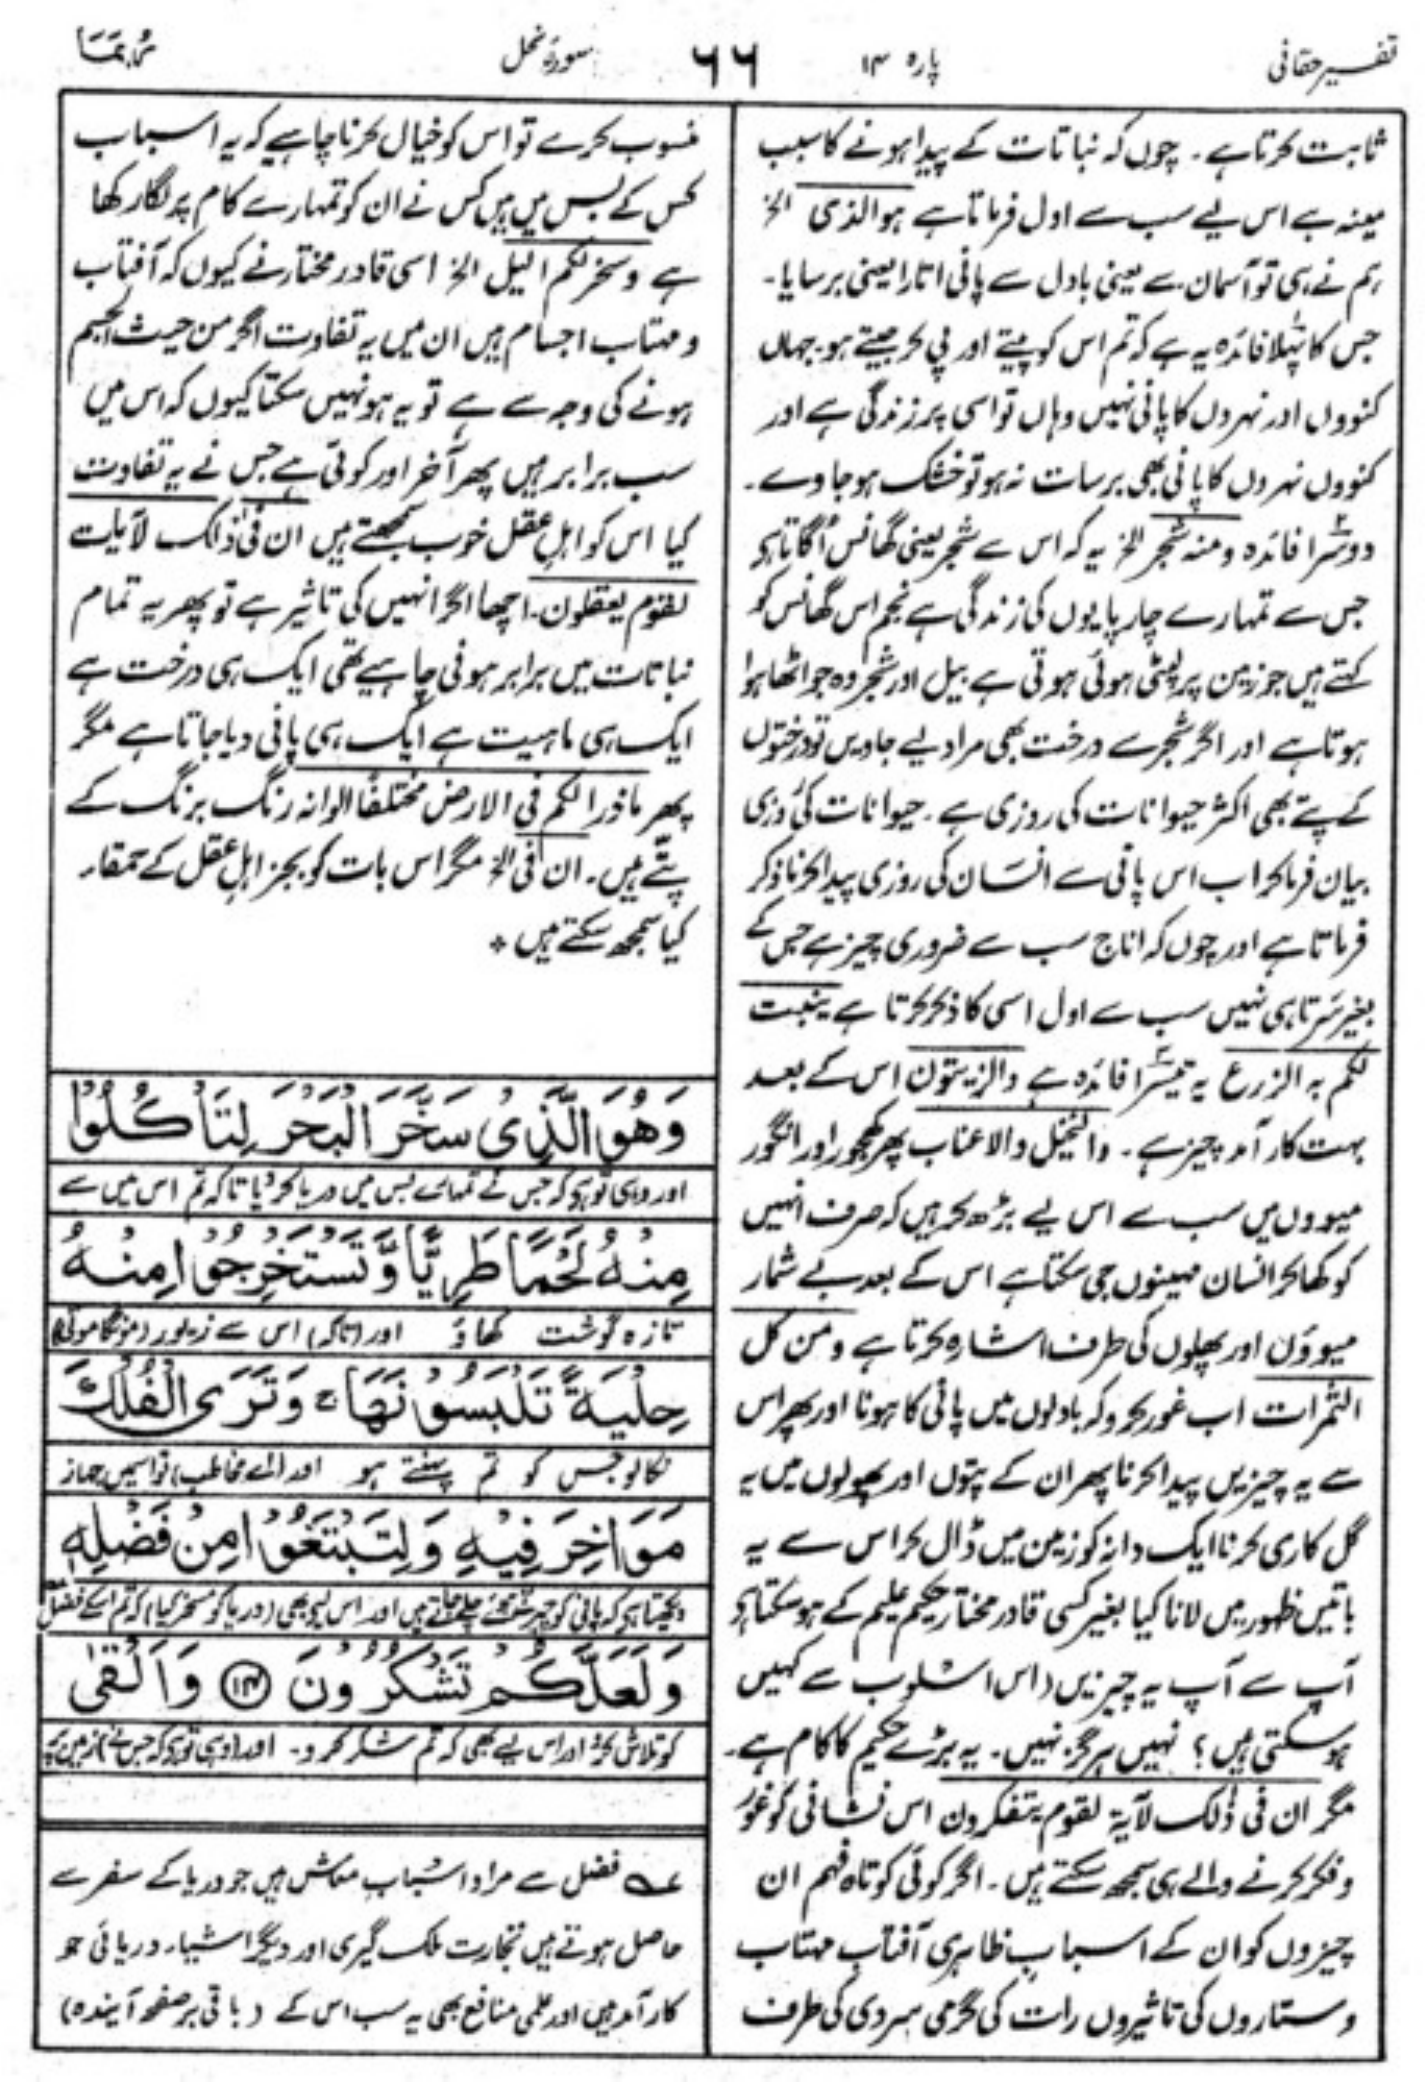 تفسیر حقانی
پارہ ۱۴
۶۶
سورۂ نحل
رُبَمَا
ثابت کرتا ہے۔ چوں کہ نباتات کے پیدا ہونے کا سبب
مینہ ہے اس لیے سب سے اول فرماتا ہے ہو الذی الخ
ہم نے ہی تو آسمان سے یعنی بادل سے پانی اتارا یعنی برسایا۔
جس کا پہلا فائدہ یہ ہے کہ تم اس کو پیتے اور پی کر جیتے ہو۔ جہاں
کنووں اور نہروں کا پانی نہیں وہاں تو اسی پر زندگی ہے اور
کنووں نہروں کا پانی بھی برسات نہ ہو تو خشک ہو جاوے۔
دوسرا فائدہ ومنہ شجر الخ یہ کہ اس سے شجر یعنی گھانس اُگاتا ہے
جس سے تمہارے چارپایوں کی زندگی ہے نجم اس گھانس کو
کہتے ہیں جو زمین پر لپٹی ہوئی ہوتی ہے بیل اور شجر وہ جو اٹھا ہوا
ہوتا ہے اور اگر شجر سے درخت بھی مراد لیے جاویں تو درختوں
کے پتے بھی اکثر حیوانات کی روزی ہے۔ حیوانات کی روزی
بیان فرما کر اب اس پانی سے انسان کی روزی پیدا کرنا ذکر
فرماتا ہے اور چوں کہ اناج سب سے ضروری چیز ہے جس کے
بغیر سَرتا ہی نہیں سب سے اول اسی کا ذکر کرتا ہے ینبت
لکم بہ الزرع یہ تیسرا فائدہ ہے والزیتون اس کے بعد
بہت کار آمد چیز ہے۔ والنخیل والاعناب پھر کھجور اور انگور
میووں میں سب سے اس لیے بڑھ کر ہیں کہ صرف انہیں
کو کھا کر انسان مہینوں جی سکتا ہے اس کے بعد بے شمار
میووں اور پھلوں کی طرف اشارہ کرتا ہے ومن کل
الثمرات اب غور کرو کہ بادلوں میں پانی کا ہونا اور پھر اس
سے یہ چیزیں پیدا کرنا پھر ان کے پتوں اور پھولوں میں یہ
گل کاری کرنا ایک دانہ کو زمین میں ڈال کر اس سے یہ
باتیں ظہور میں لانا کیا بغیر کسی قادر مختار حکیم علیم کے ہو سکتا ہے
آپ سے آپ یہ چیزیں (اس اسلوب سے کہیں
ہو سکتی ہیں؟ نہیں ہرگز نہیں۔ یہ بڑے حکیم کا کام ہے۔
مگر ان فی ذٰلک لآیۃ لقوم یتفکرون اس نشانی کو غور
و فکر کرنے والے ہی سمجھ سکتے ہیں۔ اگر کوئی کوتاہ فہم ان
چیزوں کو ان کے اسباب ظاہری آفتاب مہتاب
و ستاروں کی تاثیروں رات کی گرمی سردی کی طرف
منسوب کرے تو اس کو خیال کرنا چاہیے کہ یہ اسباب
کس کے بس میں ہیں کس نے ان کو تمہارے کام پر لگا رکھا
ہے وسخر لکم الیل الخ اسی قادر مختار نے کیوں کہ آفتاب
و مہتاب اجسام ہیں ان میں یہ تفاوت اگر من حیث الجسم
ہونے کی وجہ سے ہے تو یہ ہو نہیں سکتا کیوں کہ اس میں
سب برابر ہیں پھر آخر اور کوئی ہے جس نے یہ تفاوت
کیا اس کو اہلِ عقل خوب سمجھتے ہیں ان فی ذٰلک لآیٰت
لقوم یعقلون۔ اچھا اگر انہیں کی تاثیر ہے تو پھر یہ تمام
نباتات میں برابر ہونی چاہیے تھی ایک ہی درخت ہے
ایک ہی ماہیت ہے ایک ہی پانی دیا جاتا ہے مگر
پھر ما ذرا لکم فی الارض مختلفًا الوانہ رنگ برنگ کے
پتّے ہیں۔ ان فی الخ مگر اس بات کو بجز اہلِ عقل کے حمقاء
کیا سمجھ سکتے ہیں ٭
وَهُوَ الَّذِیْ سَخَّرَ الْبَحْرَ لِتَاْكُلُوْا
اور وہی تو ہے کہ جس نے تمہارے بس میں دریا کر دیا تاکہ تم اس میں سے
مِنْهُ لَحْمًا طَرِیًّا وَّتَسْتَخْرِجُوْا مِنْهُ
تازہ گوشت کھاؤ اور (تاکہ) اس سے زیور (مونگا موتی)
حِلْیَةً تَلْبَسُوْنَهَا ۚ وَتَرَى الْفُلْكَ
نکالو جس کو تم پہنتے ہو اور (اے مخاطب) تو اسمیں جہاز
مَوَاخِرَ فِیْهِ وَلِتَبْتَغُوْا مِنْ فَضْلِهٖ
دیکھتا ہے کہ پانی کو چیرتے ہوئے چلے جاتے ہیں اور اس لیے بھی (دریا کو مسخر کیا) کہ تم اسکے فضل
وَلَعَلَّكُمْ تَشْكُرُوْنَ ﴿۱۴﴾ وَاَلْقٰى
کو تلاش کرو اور اس لیے بھی کہ تم شکر کرو۔ اور (وہی تو ہے کہ جس نے) زمین پر
عہ فضل سے مراد اسبابِ معاش ہیں جو دریا کے سفر سے
حاصل ہوتے ہیں تجارت ملک گیری اور دیگر اشیاء دریائی جو
کار آمد ہیں اور علمی منافع بھی یہ سب اس کے (باقی بر صفحہ آیندہ)